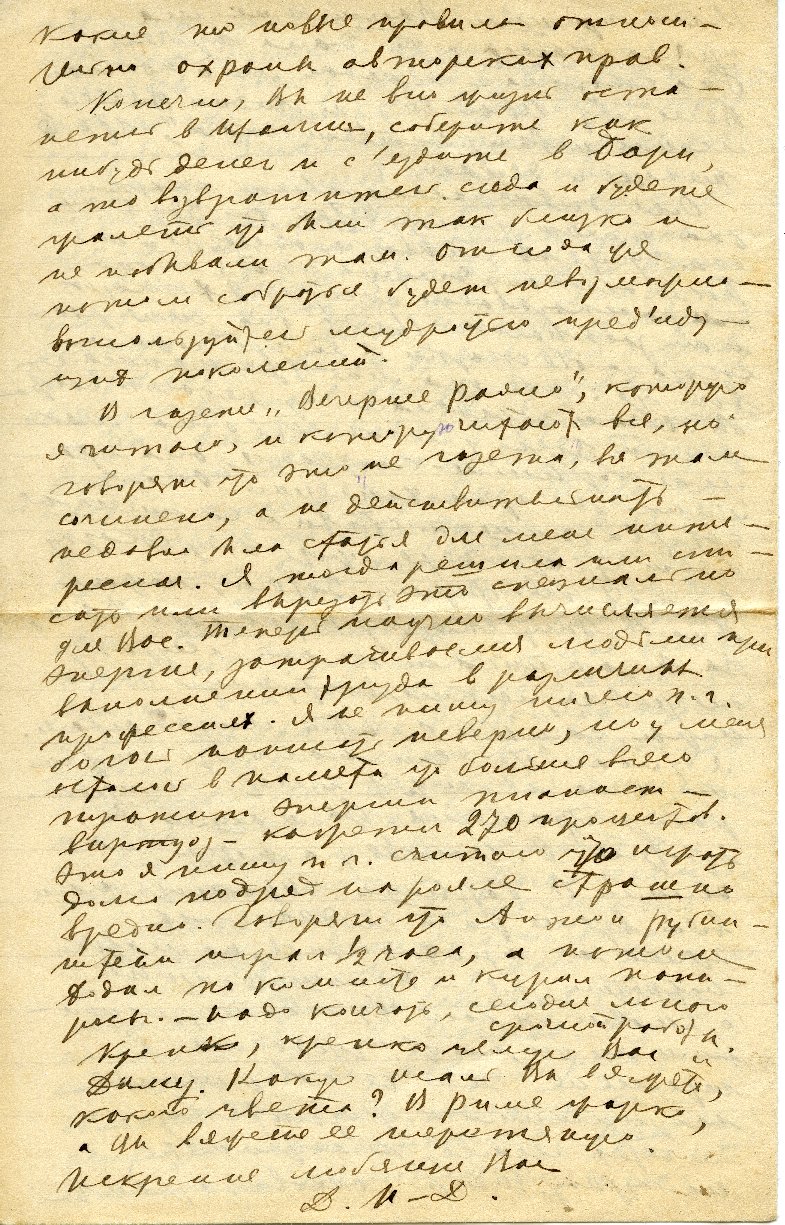 какие то новые правила относи-
тельно охраны авторских прав.
Конечно, Вы не всю жизнь оста-
нетесь в Италии, соберите как
нибудь денег и с'ездите в Бари,
а то возвратитесь сюда и будете
жалеть что были так близко и
не побывали там. Отсюда уже
потом собраться будет невозможно —
воспользуйтесь мудростью пред'иду-
щих поколений.
В газете „Вечернее Радио", которую
я читаю, и которую читают все, но
говорят что это не газета, все там
сочинено, а не действительность —
недавно была статья для меня инте-
ресная. Я тогда решила или спи-
сать или вырезать это специально
для Вас. Теперь научно вычисляется
энергия, затрачиваемая людьми при
выполнении труда в различных
профессиях. Я не пишу ничего п.ч.
боюсь написать неверно, но у меня
осталось в памяти что больше всего
тратит энергии пианист —
виртуоз — 270 процентов.
Это я пишу п.ч. считаю что играть
долго подряд на рояле страшно
вредно. Говорят что Антон Рубин-
штейн играл 1/2 часа, а потом
ходил по комнате и курил папи-
росы. — Надо кончать, сегодня много
срочной работы.
Крепко, крепко целую Вас и
Диму. Какую шаль Вы вяжете,
какого цвета? В Риме жарко,
а Вы вяжете ее шерстяную.
Искренне любящая Вас
Д. И-Д.